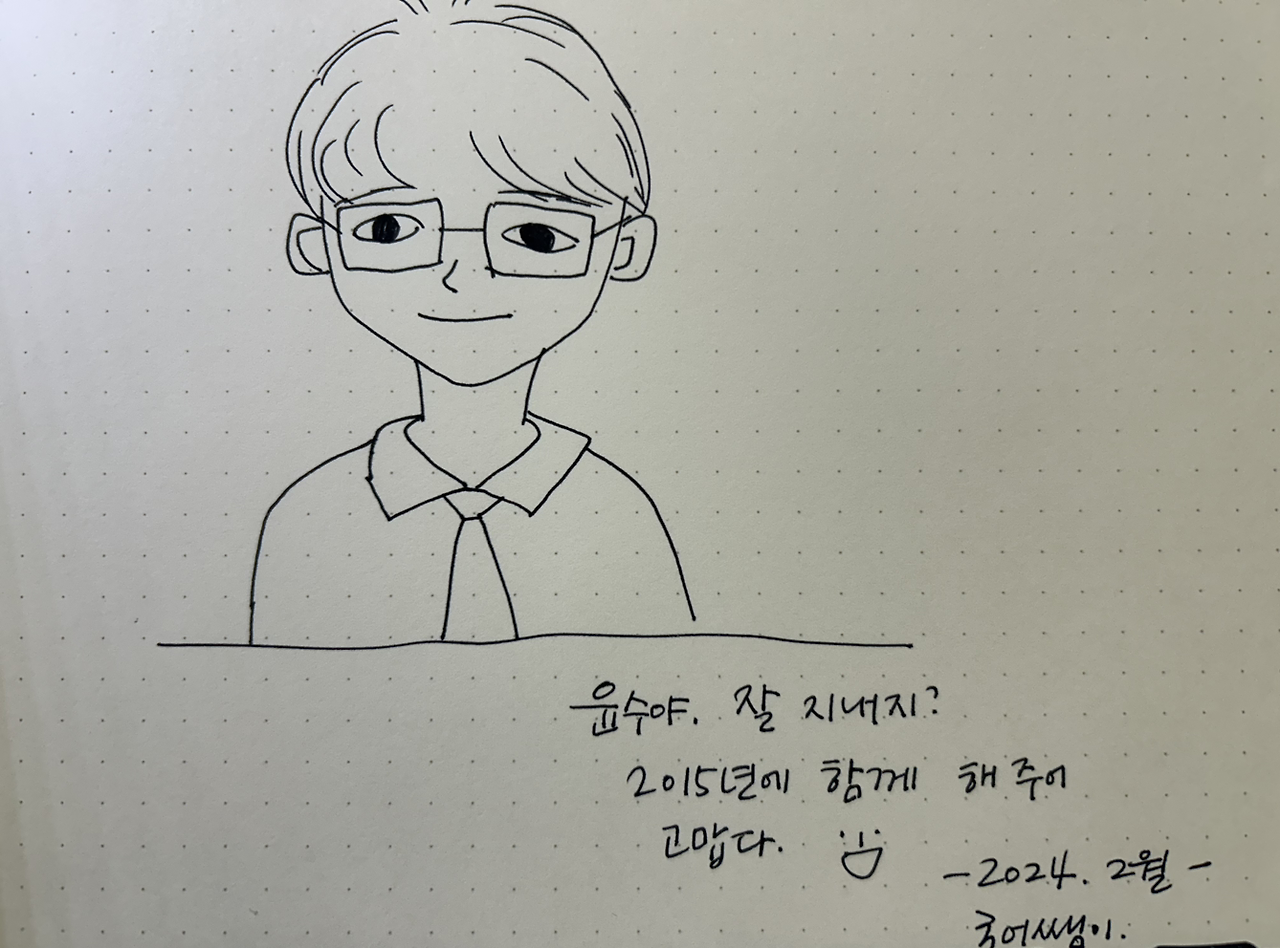 윤수야. 잘 지내지?
2015년에 함께 해 주어
고맙다.
-2024. 2월-
국어쌤이.